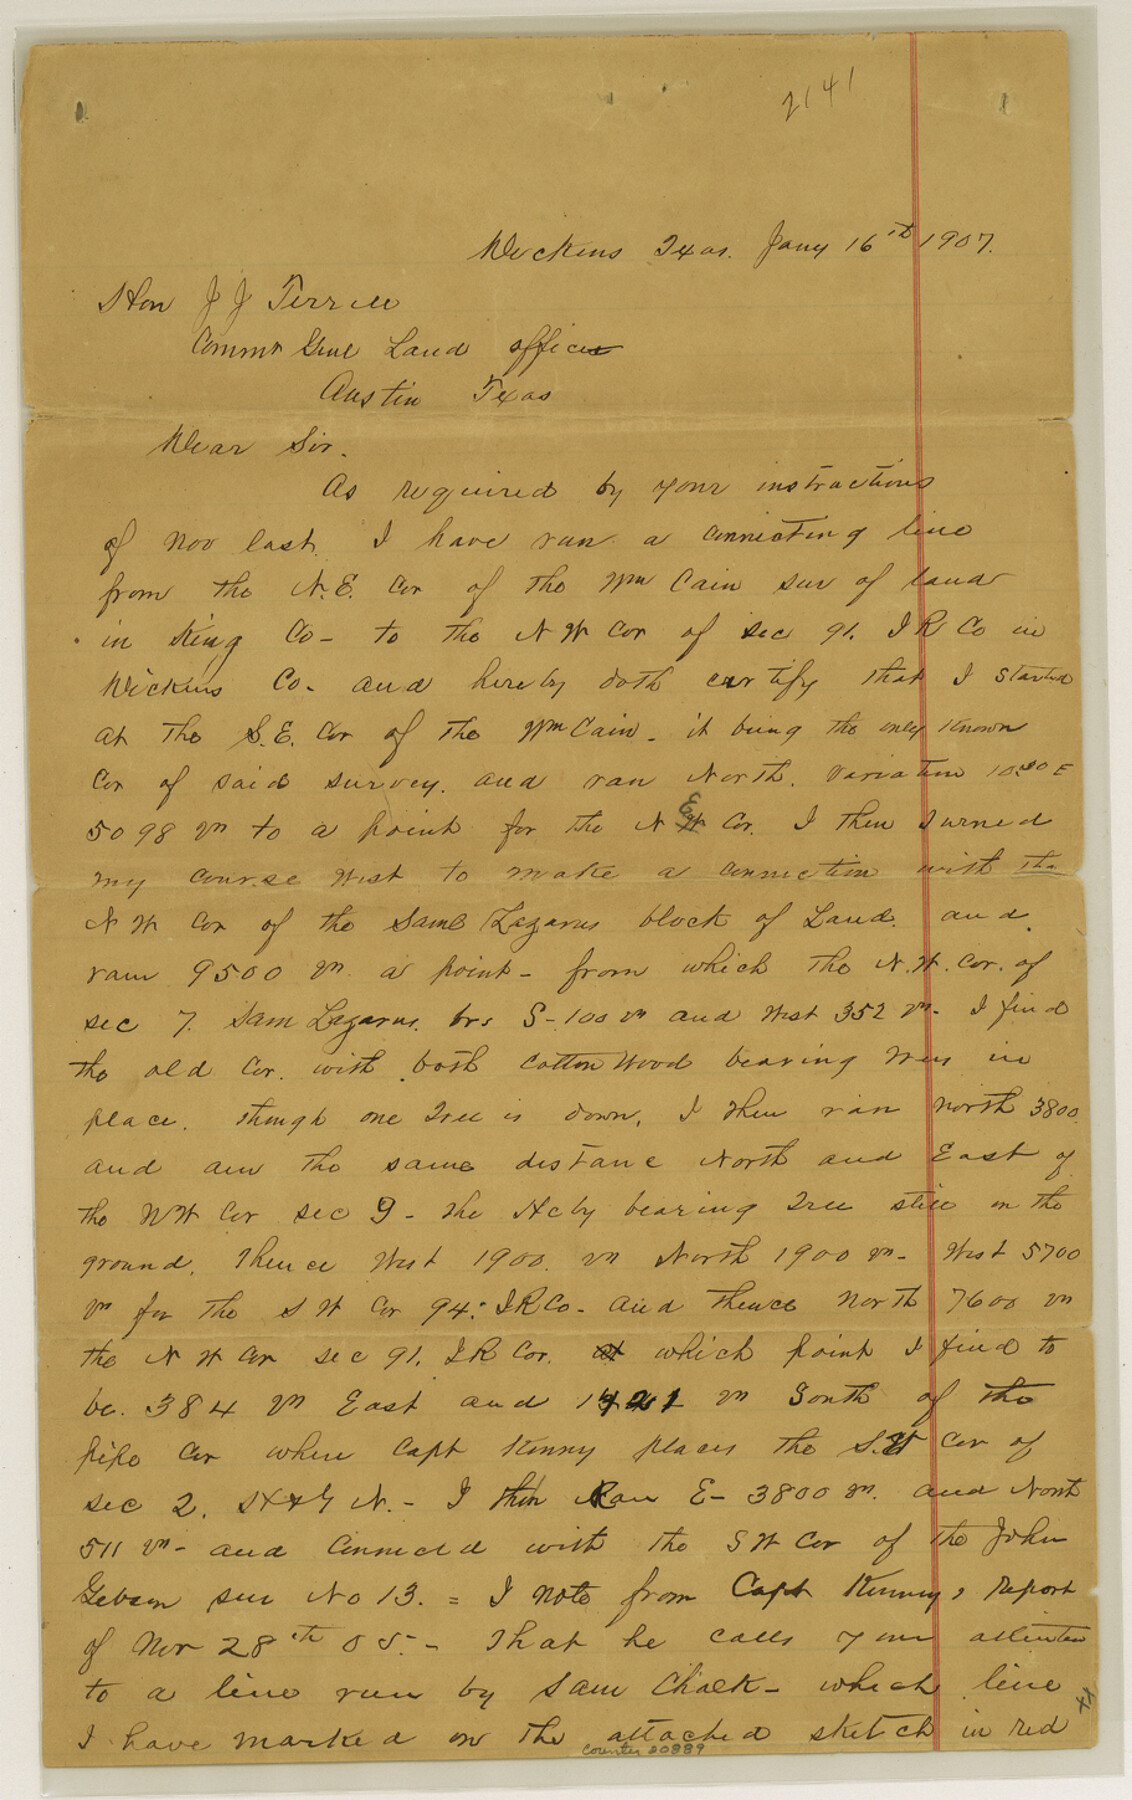 2141
Dickens Texas. Jany 16th 1907.
Hon J J Terrell
Commr Genl Land office
Austin Texas
Dear Sir.
As required by your instructions
of Nov last. I have run a connecting line
from the N.E. Cor of the Wm Cain sur of land
in King Co- to the N W Cor of sec 91. I R Co in
Dickens Co- and hereby doth certify that I started
at the S.E. Cor of the Wm Cain- it being the only known
Cor of said survey. and ran North. Variation 10.30 E
5098 vrs to a point for the N E Cor. I then turned
my course West to make a connection with the
N W Cor of the Saml Lazarus block of Land. and
ran 9500 vrs a point- from which the N.W. Cor. of
sec 7. Sam Lazarus. brs S-100 vrs and West 352 vrs- I find
the old Cor. with both Cotton Wood bearing trees in
place. though one Tree is down. I then ran north 3800
and am the same distance North and East of
the NW Cor sec 9- the Hcby bearing Tree still on the
ground. Thence West 1900. vrs North 1900 vrs- West 5700
vrs for the S W Cor 94. I R Co- and thence North 7600 vrs
the N W Cor sec 91. I R Cor. at which point I find to
be. 384 vrs East and 1421 vrs South of the
pipe Cor where Capt Kenny places the S.W Cor of
sec 2. - I then Ran E- 3800 vrs. and North
511 vrs- and connected with the S W Cor of the John
Gibson sur No 13. = I note from Capt Kenneys Report
of Nov 28th 05.- That he calls your attention
to a line run by Sam Chalk- which line
I have marked on the attached sketch in red
counter 20889